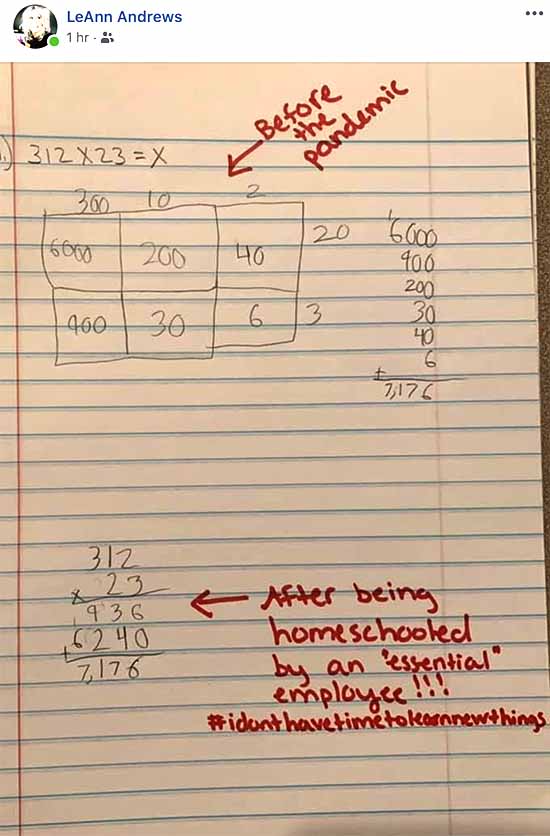 LeAnn Andrews
1 hr ·
Before
the
pandemic
312 X 23 = X
300 10 2
6000 200 40 20
900 30 6 3
6000
900
200
30
40
6
+
7,176
312
x 23
936
+6240
7,176
After being
homeschooled
by an "essential"
employee!!!
#idonthavetimetolearnnewthings